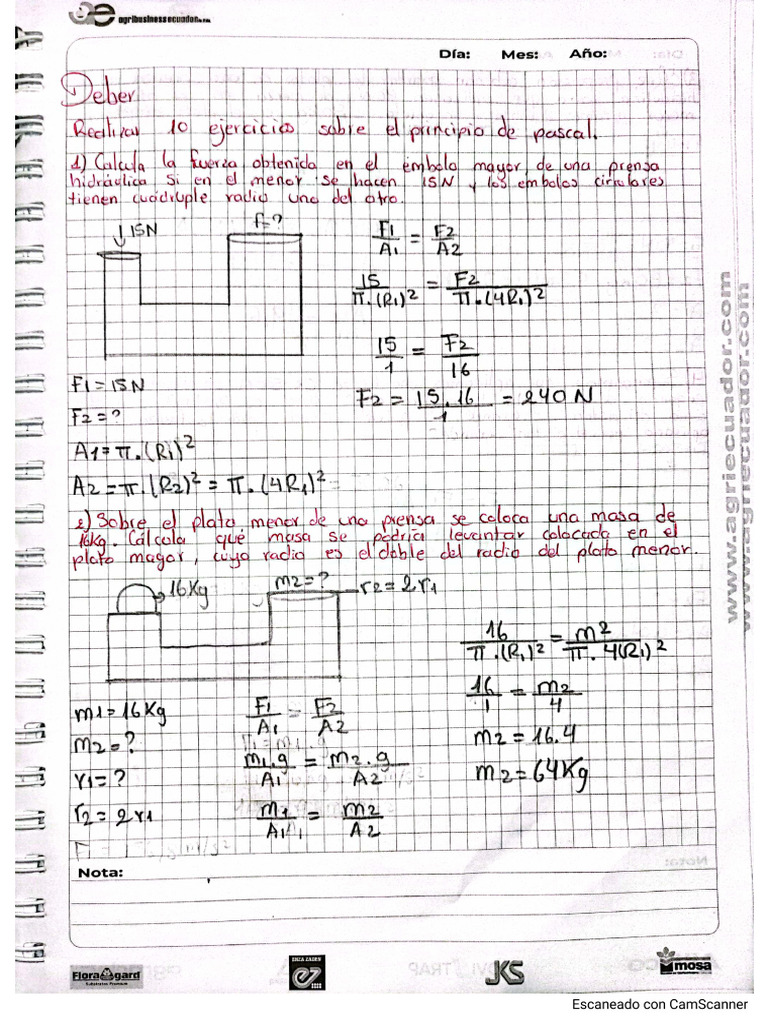 agribusinessecuador.com
Día: Mes: Año:
Deber
Realizar 10 ejercicios sobre el principio de pascal.
1) Calcula la fuerza obtenida en el émbolo mayor de una prensa
hidráulica si en el menor se hacen 15N y los embolos circulares
tienen cuádruple radio uno del otro.
↓15N F=?
F1/A1 = F2/A2
15/π.(R1)² = F2/π.(4R1)²
15/1 = F2/16
F2 = 15.16/1 = 240 N
F1=15N
F2=?
A1=π.(R1)²
A2=π.(R2)²=π.(4R1)²
2) Sobre el plato menor de una prensa se coloca una masa de
16kg. Cálcula que masa se podría levantar colocada en el
plato mayor, cuyo radio es el doble del radio del plato menor.
16Kg m2=? r2=2r1
m1=16Kg
m2=?
r1=?
r2=2r1
F1/A1 = F2/A2
m1.g/A1 = m2.g/A2
m1/A1 = m2/A2
16/π.(R1)² = m2/π.4(R1)²
16/1 = m2/4
m2=16.4
m2=64Kg
Nota:
www.agriecuador.com
www.agriecuador.com
Flora gard
Substratos Premium
ERICA ZADEN
ez
JKS
mosa
Escaneado con CamScanner